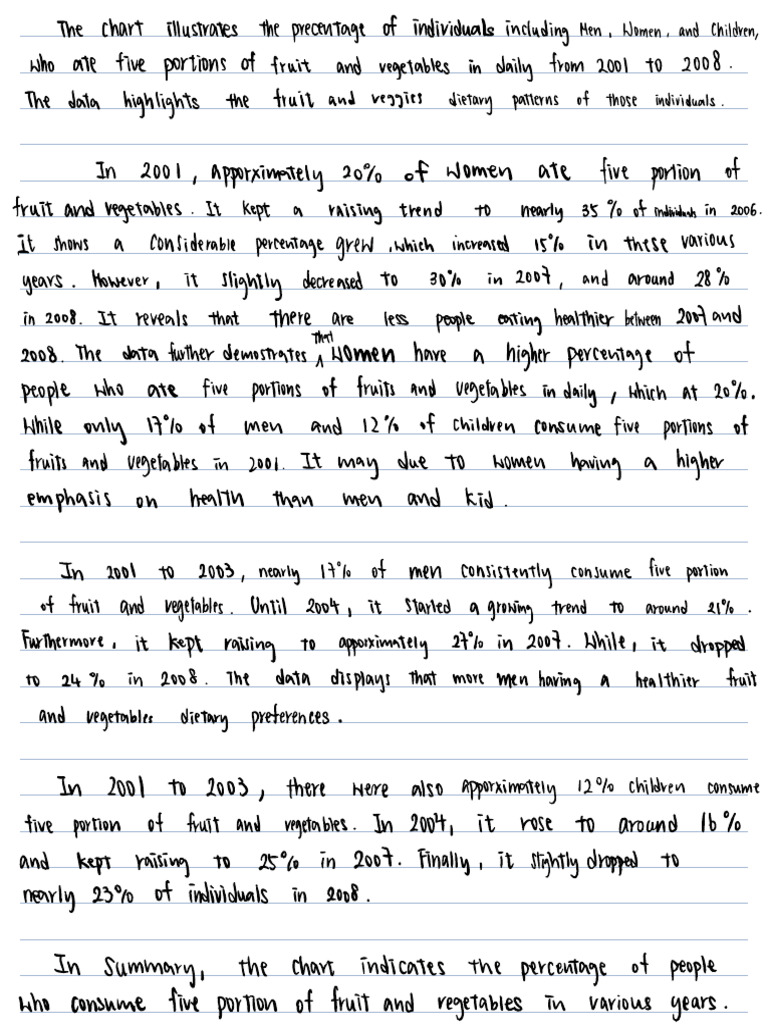 The chart illustrates the precentage of individuals including Men, Women, and Children,
who ate five portions of fruit and vegetables in daily from 2001 to 2008.
The data highlights the fruit and veggies dietary patterns of those individuals.
In 2001, Apporximately 20% of women ate five portion of
fruit and vegetables. It kept a raising trend to nearly 35% of individuals in 2006.
It shows a considerable percentage grew, which increased 15% in these various
years. However, it slightly decreased to 30% in 2007, and around 28%
in 2008. It reveals that there are less people eating healthier between 2007 and
2008. The data further demostrates that women have a higher percentage of
people who ate five portions of fruits and vegetables in daily, which at 20%.
While only 17% of men and 12% of children consume five portions of
fruits and vegetables in 2001. It may due to women having a higher
emphasis on health than men and kid.
In 2001 to 2003, nearly 17% of men consistently consume five portion
of fruit and vegetables. Until 2004, it started a growing trend to around 21%.
Furthermore, it kept raising to apporximately 27% in 2007. While, it dropped
to 24% in 2008. The data displays that more men having a healthier fruit
and vegetables dietary preferences.
In 2001 to 2003, there were also apporximately 12% children consume
five portion of fruit and vegetables. In 2004, it rose to around 16%
and kept raising to 25% in 2007. Finally, it slightly dropped to
nearly 23% of individuals in 2008.
In Summary, the chart indicates the percentage of people
who consume five portion of fruit and vegetables in various years.